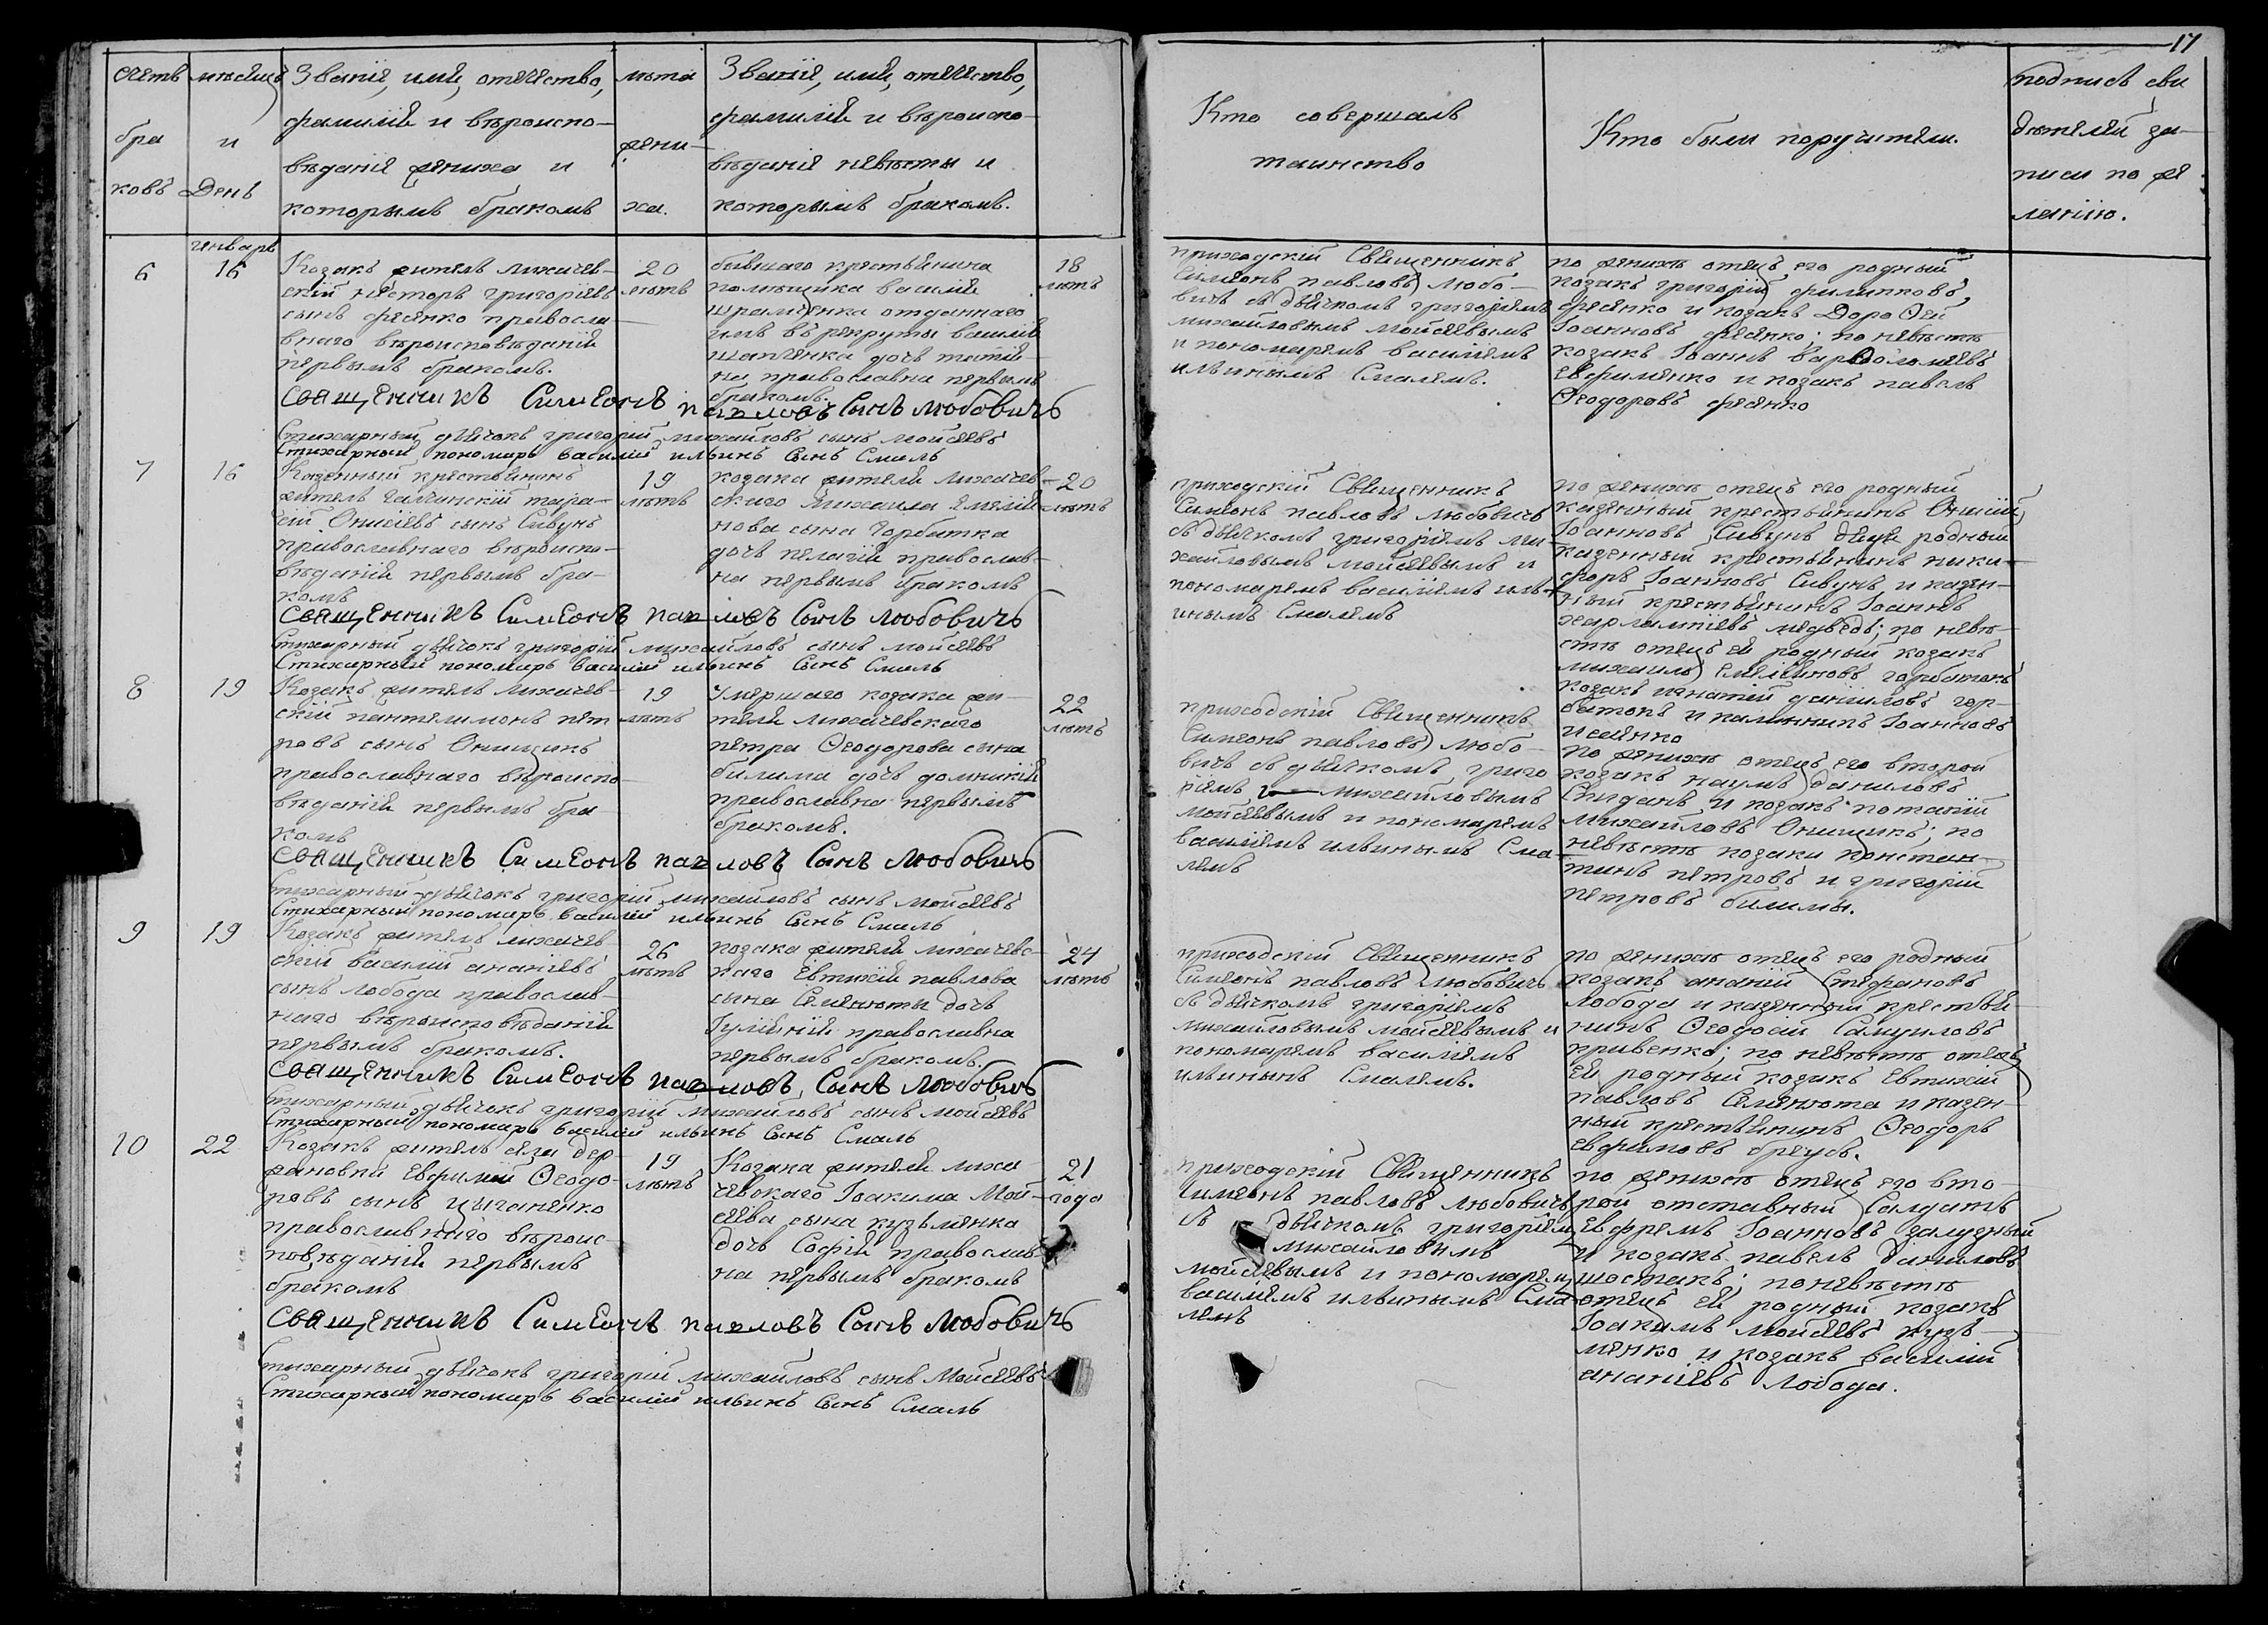 17
счетъ бра ковъ
мѣсяцъ и День
Званіе, имя, отечество,
фамилія и вѣроиспо-
вѣданіе жениха и
которымъ бракомъ
лѣта
жени-
ха.
Званіе, имя, отечество,
фамилія и вѣроиспо-
вѣданіе невѣсты и
которымъ бракомъ.
Кто совершалъ
таинство
Кто были поручители.
подпись сви
дѣтелей за-
писи по же
ланію.
6
генварь
16
Козакъ житель лихачев-
скій Несторъ григоріевъ
сынъ феянко правосла-
внаго вѣроисповѣданія
первымъ бракомъ.
20
лѣтъ
бывшаго крестьянина
помѣщика василія
отданнаго
имъ въ рекруты василія
дочь татія-
на православна первымъ
бракомъ.
18
лѣтъ
приходскій Священникъ
Симеонъ павловъ Любо-
вичъ съ дьячкомъ григоріемъ
михайловымъ мойсеевымъ
и пономаремъ василіемъ
ильинымъ Смалемъ.
по женихѣ отецъ его родный
козакъ григорій филипповъ
феянко и козакъ Дороѳей
Іоанновъ феянко; по невѣстѣ
козакъ Іоаннъ варѳоломеевъ
Евфименко и козакъ павелъ
Ѳеодоровъ феянко
Священникъ Симеонъ павловъ Сынъ Любовичъ
Стихарный дьячокъ григорій михайловъ сынъ мойсеевъ
Стихарный пономарь василій ильинъ Сынъ Смаль
7
16
Казенный крестьянинъ
житель галчинскій тара-
сій Онисіевъ сынъ Сивунъ
православнаго вѣроиспо-
вѣданія первымъ бра-
комъ
19
лѣтъ
козака жителя Лихачев-
скаго михаила Емелія-
нова сына Горбатка
дочь пелагія православ-
на первымъ бракомъ
20
лѣтъ
приходскій Священникъ
Симеонъ павловъ Любовичъ
съ дьячкомъ григоріемъ ми-
хайловымъ мойсеевымъ и
пономаремъ василіемъ иль-
инымъ Смалемъ
по женихѣ отецъ его родный
казенный крестьянинъ Онисій
Іоанновъ Сивунъ дядя родный
казенный крестьянинъ ники-
форъ Іоанновъ Сивунъ и казен-
ный крестьянинъ Іоаннъ
харлампіевъ медведь; по невѣ-
стѣ отецъ ея родный козакъ
михаилъ Емеліяновъ горбатокъ
козакъ игнатій даниловъ гор-
батокъ и калинникъ Іоанновъ
исаенко
Священникъ Симеонъ павловъ Сынъ Любовичъ
Стихарный дьячокъ григорій михайловъ сынъ мойсеевъ
Стихарный пономарь василій ильинъ Сынъ Смаль
8
19
Козакъ житель лихачев-
скій пантелимонъ пет
ровъ сынъ Онищикъ
православнаго вѣроиспо-
вѣданія первымъ бра-
комъ
19
лѣтъ
Умершаго козака жи-
теля лихачевскаго
петра Ѳеодорова сына
билима дочь домникія
православна первымъ
бракомъ.
22
лѣтъ
приходскій Священникъ
Симеонъ павловъ Любо-
вичъ съ дьячкомъ григо
ріемъ михайловымъ
мойсеевымъ и пономаремъ
василіемъ ильинымъ Сма-
лемъ
по женихѣ отецъ его второй
козакъ наумъ даниловъ
и козакъ потапій
михайловъ Онищикъ; по
невѣстѣ козаки констан-
тинъ петровъ и григорій
петровъ билимы.
Священникъ Симеонъ павловъ Сынъ Любовичъ
Стихарный дьячокъ григорій михайловъ сынъ мойсеевъ
Стихарный пономарь василій ильинъ Сынъ Смаль
9
19
Козакъ житель лихачев-
скій василій ананіевъ
сынъ лобода православ-
наго вѣроисповѣданія
первымъ бракомъ.
26
лѣтъ
козака жителя лихачевс-
каго Евтихія павлова
сына Семенюты дочь
Іуліянія православна
первымъ бракомъ.
24
лѣтъ
приходскій Священникъ
Симеонъ павловъ Любовичъ
съ дьячкомъ григоріемъ
михайловымъ мойсеевымъ и
пономаремъ василіемъ
ильинымъ Смалемъ.
по женихѣ отецъ его родный
козакъ ананій Стефановъ
Лобода и казенный крестья-
нинъ Ѳеодосій Самуиловъ
кривенко; по невѣстѣ отецъ
ея родный козакъ Евтихій
павловъ Семенюта и казен-
ный крестьянинъ Ѳеодоръ
Евфимовъ брусъ.
Священникъ Симеонъ павловъ Сынъ Любовичъ
Стихарный дьячокъ григорій михайловъ сынъ мойсеевъ
Стихарный пономарь василій ильинъ Сынъ Смаль
10
22
Козакъ житель села дер-
жановки Евфимій Ѳеодо-
ровъ сынъ цыганенко
православнаго вѣроис-
повѣданія первымъ
бракомъ
19
лѣтъ
Козака жителя лиха-
чевскаго Іоакима Мой-
сеева сына кузьменка
дочь Софія православ-
на первымъ бракомъ
21
года
приходскій Священникъ
Симеонъ павловъ Любовичъ
съ дьячкомъ григоріемъ
михайловымъ
мойсеевымъ и пономаремъ
василіемъ ильинымъ Сма-
лемъ
по женихѣ отецъ его вто-
рой отставный Салдатъ
Евфремъ Іоанновъ
и козакъ павелъ даниловъ
шостакъ; по невѣстѣ
отецъ ея родный козакъ
Іоакимъ мойсеевъ кузь-
менко и козакъ василій
ананіевъ Лобода.
Священникъ Симеонъ павловъ Сынъ Любовичъ
Стихарный дьячокъ григорій михайловъ сынъ Мойсеевъ
Стихарный пономарь василій ильинъ Сынъ Смаль